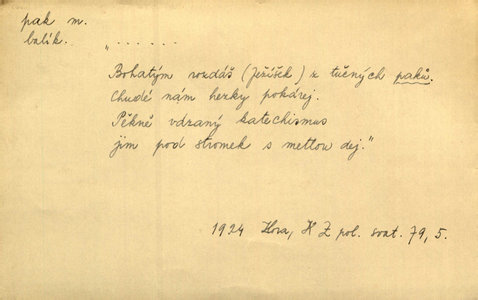 pak m.
balík.
„ . . . . . .
Bohatým rozdáš (Ježíšek) z tučných paků.
Chudé nám hezky pokárej.
Pěkně vázaný katechismus
jim pod stromek s metlou dej."
1924 Hora, Z pol. svat. 79, 5.